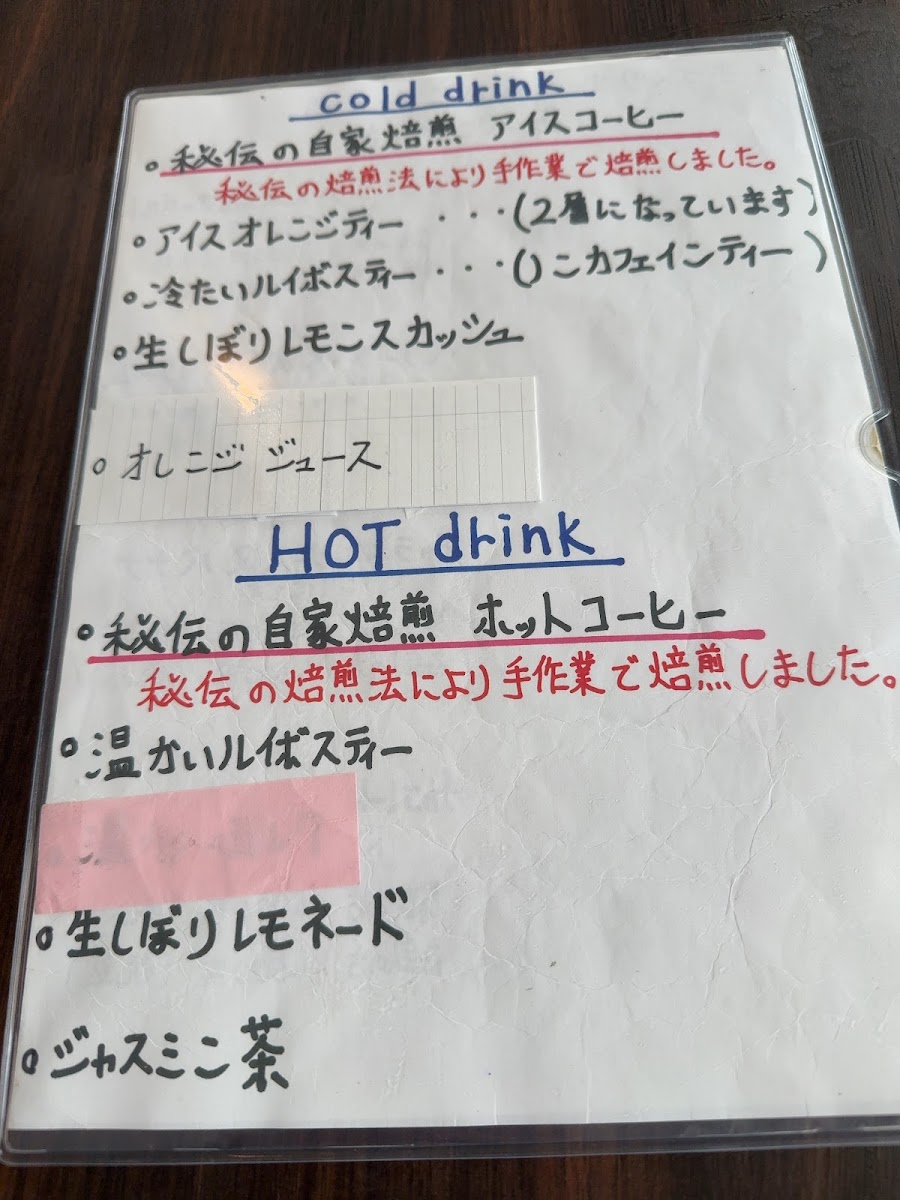 cold drink
。秘伝の自家焙煎 アイスコーヒー
秘伝の焙煎法により手作業で焙煎しました。
。アイスオレンジティー ・・・(2層になっています)
。冷たいルイボスティー・・・(ﾉンカフェインティー)
。生しぼりレモンスカッシュ
。オレンジ ジュース
HOT drink
。秘伝の自家焙煎 ホットコーヒー
秘伝の焙煎法により手作業で焙煎しました。
。温かいルイボスティー
。生しぼりレモネード
。ジャスミン茶